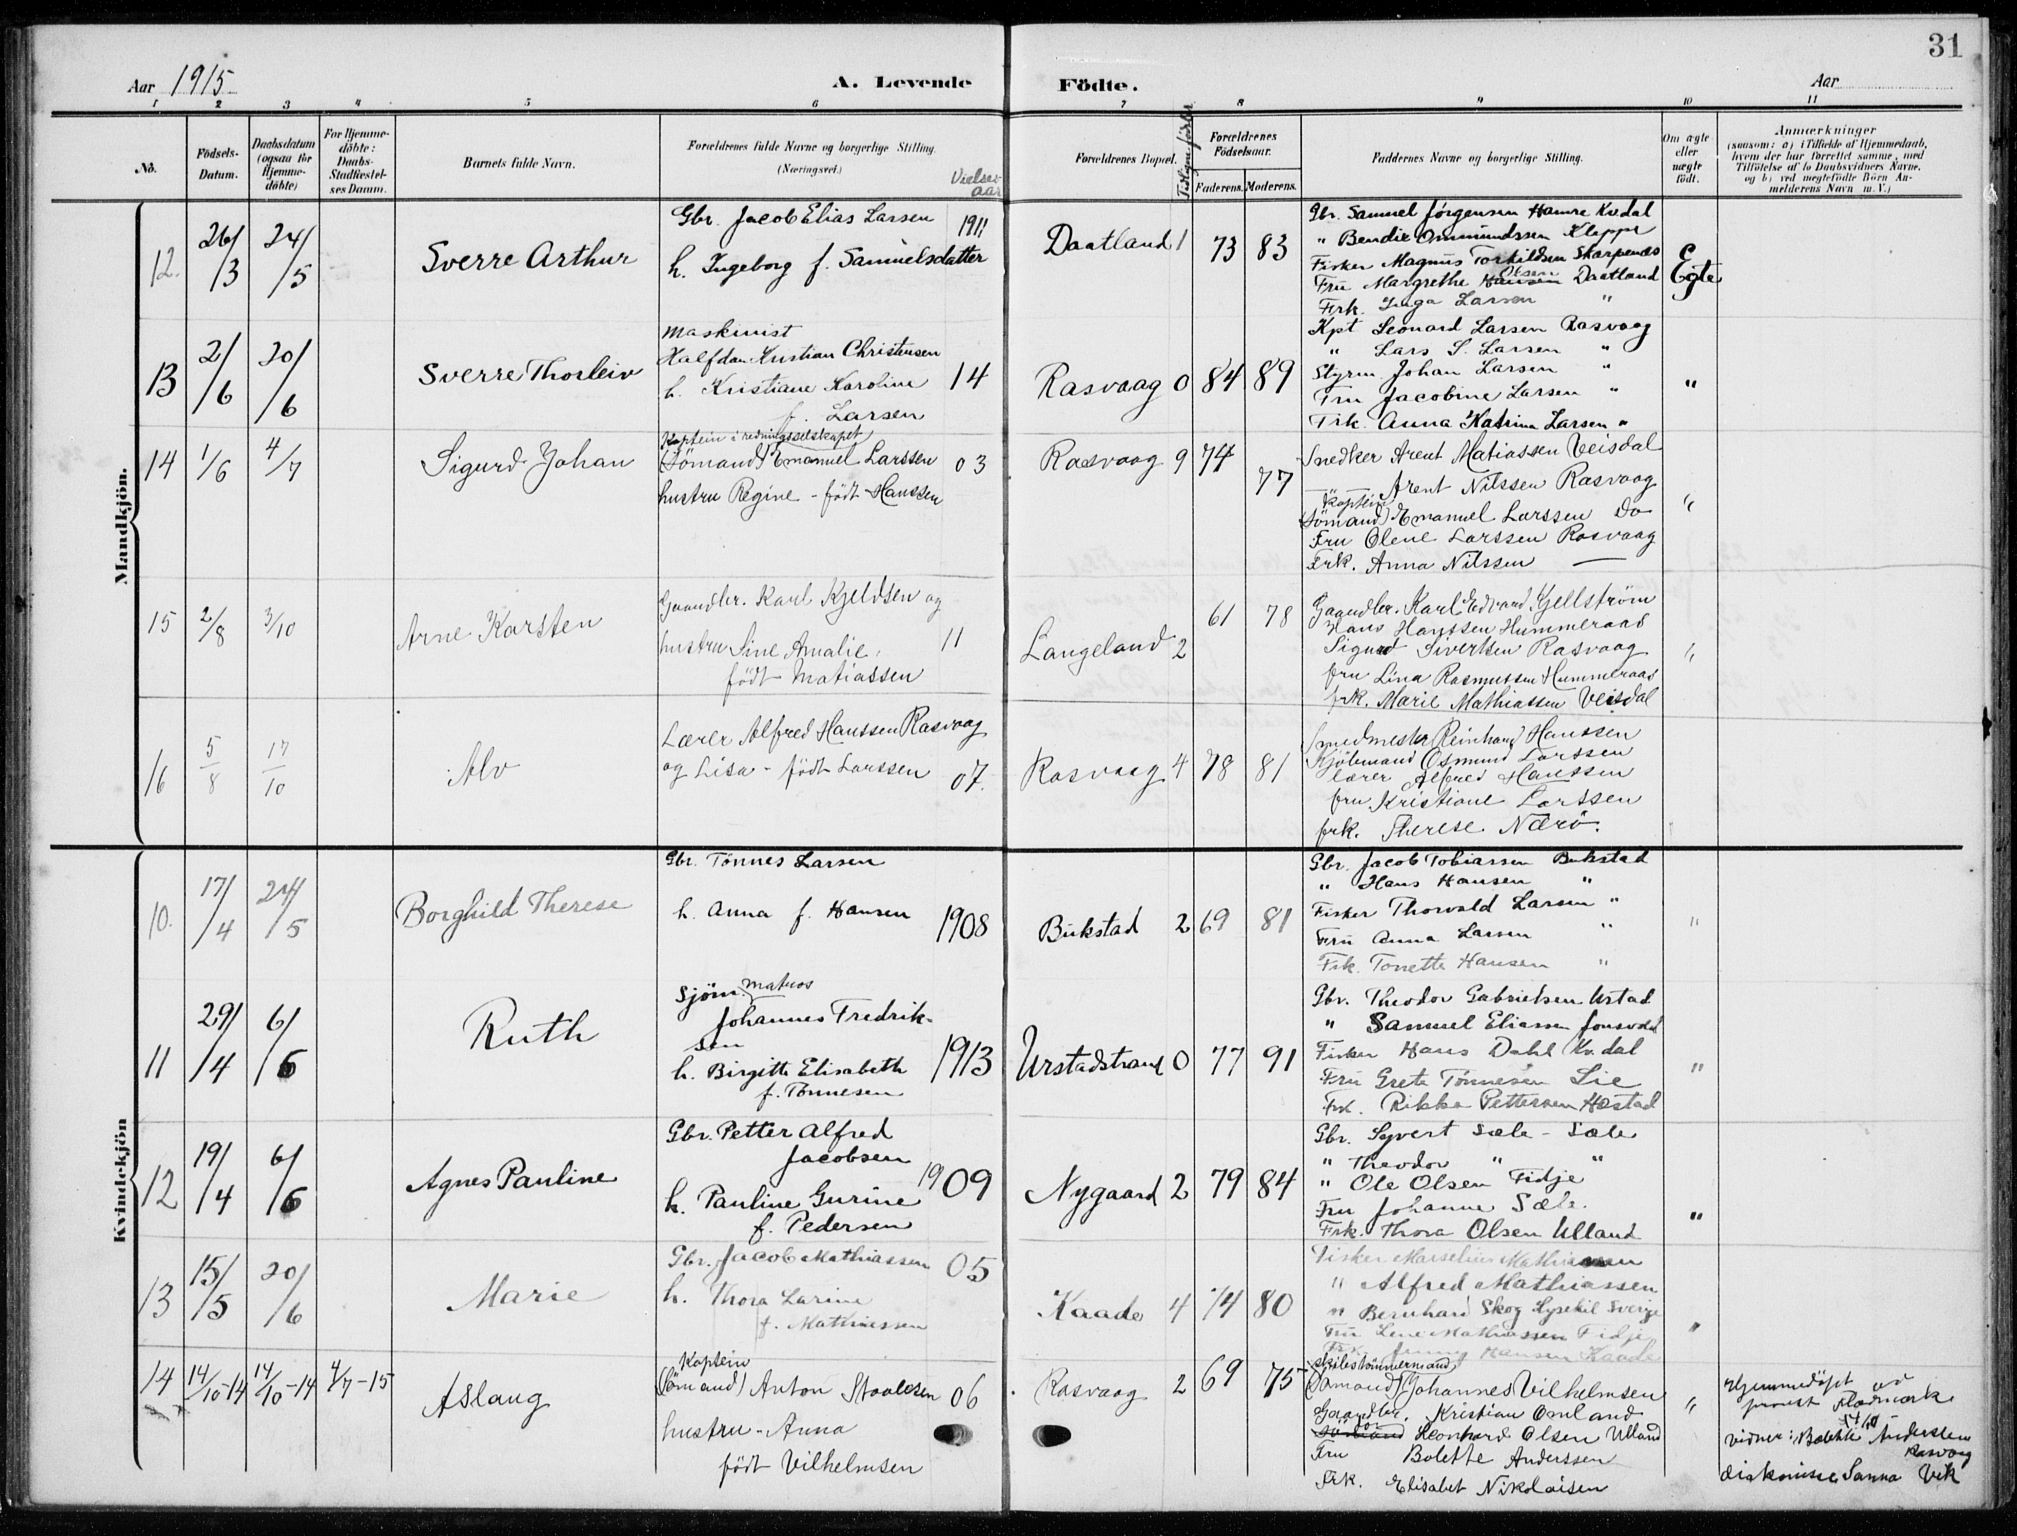 31
Aar 1915
A. Levende Födte.
Aar
1 2 3 4 5 6 7 8 9 10 11
No.
Födsels-Datum.
Daabsdatum (ogsaa for Hjemme-döbte)
For Hjemme-döbte: Daabs-Stadfestel-ses Datum.
Barnets fulde Navn.
Forældrenes fulde Navne og borgerlige Stilling. (Næringsvei.)
Vielses-aar
Forældrenes Bopæl.
Forældrenes Födselsaar.
Faderens. Moderens.
Faddernes Navne og borgerlige Stilling.
Om ægte eller uægte födt.
Anmærkninger
(saasom: a) i Tilfælde af Hjemmedaab, hvem der har forrettet samme, med Tilföielse af to Daabsvidners Navne. og b) ved uægtefödte Börn An-melderens Navn m. V.)
Mandkjön.
12. 26/3 24/5 Sverre Arthur
Gbr. Jacob Elias Larsen 1911
h. Ingeborg f. Samuelsdatter
Daatland 1 73 83
Gbr. Samuel Jörgensen Hamre Kvedal
" Bendix Ommundssen Kleppe
Fisker Magnus Torkildsen Skarpenæs
Fru Margrethe Hansen Olsen Daatland
Frk. Inga Larsen "
Egte
13 2/6 20/6 Sverre Thorleiv
Maskinist
Halfdan Kristian Christensen
h. Kristiane Karoline 14
f. Larsen
Rasvaag 0 84 89
Kpt Leonard Larsen Rasvaag
" Lars S. Larsen "
Styrm Johan Larsen "
Fru Jacobine Larsen "
Frk. Anna Katrina Larsen "
"
14 1/6 4/7 Sigurd Johan
Kaptein i redningsselskapet
(Sömand) Emanuel Larssen 03
hustru Regine - födt Hanssen
Rasvaag 9 74 77
Snedker Arent Matiassen Veisdal
Arent Nilssen Rasvaag
Kaptein
(Sömand) Emanuel Larssen Do
Fru Olene Larssen Rasvaag
Frk. Anna Nilssen —
"
15 2/8 3/10 Arne Karsten
Gaardbr. Karl Kjeldsen og
hustru Sine Amalie, 11
födt Matiassen
Langeland 2 61 78
Gaardbr. Karl Edvard Kjellström
Hans Hanssen Hummeraas
Sigurd Sivertsen Rasvaag
fru Lina Rasmussen Hummeraas
frk. Marie Mathiassen Veisdal
"
16 5/8 17/10 Alv
Lærer Alfred Hanssen Rasvaag
og Lisa - födt Larssen 07.
Rasvaag 4 78 81
Smedmester Reinhard Hanssen
Kjöbmand Osmund Larssen
lærer Alfred Hanssen
fru Kristiane Larssen
frk. Therese Nærö.
Kvindekjön
10. 17/4 24/5 Borghild Therese
Gbr. Tönnes Larsen
h. Anna f. Hansen 1908
Bukstad 2 69 81
Gbr. Jacob Tobiassen Bukstad
" Hans Hansen "
Fisker Thorvald Larsen "
Fru Anna Larsen "
Frk. Tonette Hansen "
"
11 29/4 6/6 Ruth
Sjöm. Matros
Johannes Fredrik-
sen
h. Birgitte Elisabeth 1913
f. Tönnesen
Urstadstrand 0 77 91
Gbr. Theodor Gabrielsen Urstad
" Samuel Eliassen
Fisker Hans Dahl Kvedal
Fru Grete Tönnesen Lie
Frk. Rikke Pettersen Hestad
"
12 19/4 6/6 Agnes Pauline
Gbr. Petter Alfred
Jacobsen
h. Pauline Gurine 1909
f. Pedersen
Nygaard 2 79 84
Gbr. Syvert Sæle - Sæle
" Theodor " "
" Ole Olsen Fidje
Fru Johanne Sæle.
Frk. Thora Olsen Ulland
"
13 15/5 20/6 Marie
Gbr. Jacob Mathiassen 05
h. Thora Larine
f. Mathiassen
Kaade 4 74 80
Fisker Marselius Mathiassen
" Alfred Mathiassen
" Bernhard Skog Lysekil Sverige
Fru Lene Mathiassen Fidje
Frk. Jenny Hansen Kaade
"
14 14/10-14 14/10-14 4/7-15 Aslaug
Kaptein
(Sömand) Anton Staalesen 06
hustru - Anna
födt Vilhelmsen
Rasvaag 2 69 75
Skibstömmermand
(Sömand) Johannes Vilhelmsen
Gaardbr. Kristian Omland
Leonhard Olsen Ulland
Fru Bolette Anderssen
Frk. Elisabet Nikolaisen
"
Hjemmedöpt av
prest Flodmark
vidner: Bolette Anderssen
Rasvaag
diakonisse Sanna Vik